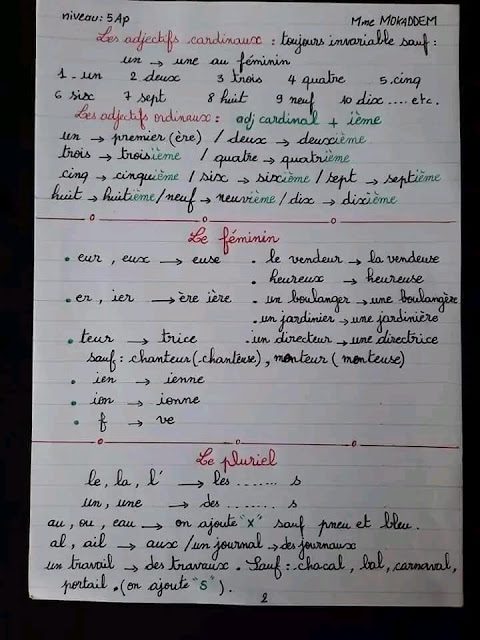 niveau: 5 Ap Mme MOKADDEM
Les adjectifs cardinaux : toujours invariable sauf :
un → une au féminin
1 - un 2 deux 3 trois 4 quatre 5. cinq
6 six 7 sept 8 huit 9 neuf 10 dix .... etc.
Les adjectifs ordinaux : adj cardinal + ième
un → premier (ère) / deux → deuxième
trois → troisième / quatre → quatrième
cinq → cinquième / six → sixième / sept → septième
huit → huitième / neuf → neuvième / dix → dixième
Le féminin
• eur, eux → euse . le vendeur → la vendeuse
. heureux → heureuse
• er, ier → ère ière . un boulanger → une boulangère
. un jardinier → une jardinière
• teur → trice . un directeur → une directrice
sauf : chanteur (chanteuse), monteur (monteuse)
• ien → ienne
• ion → ionne
• f → ve
Le pluriel
le, la, l' → les ........ s
un, une → des ........ s
au, ou, eau → on ajoute "x" sauf pneu et bleu.
al, ail → aux / un journal → des journaux
un travail → des travaux. Sauf : chacal, bal, carnaval,
portail. (on ajoute "s").
2